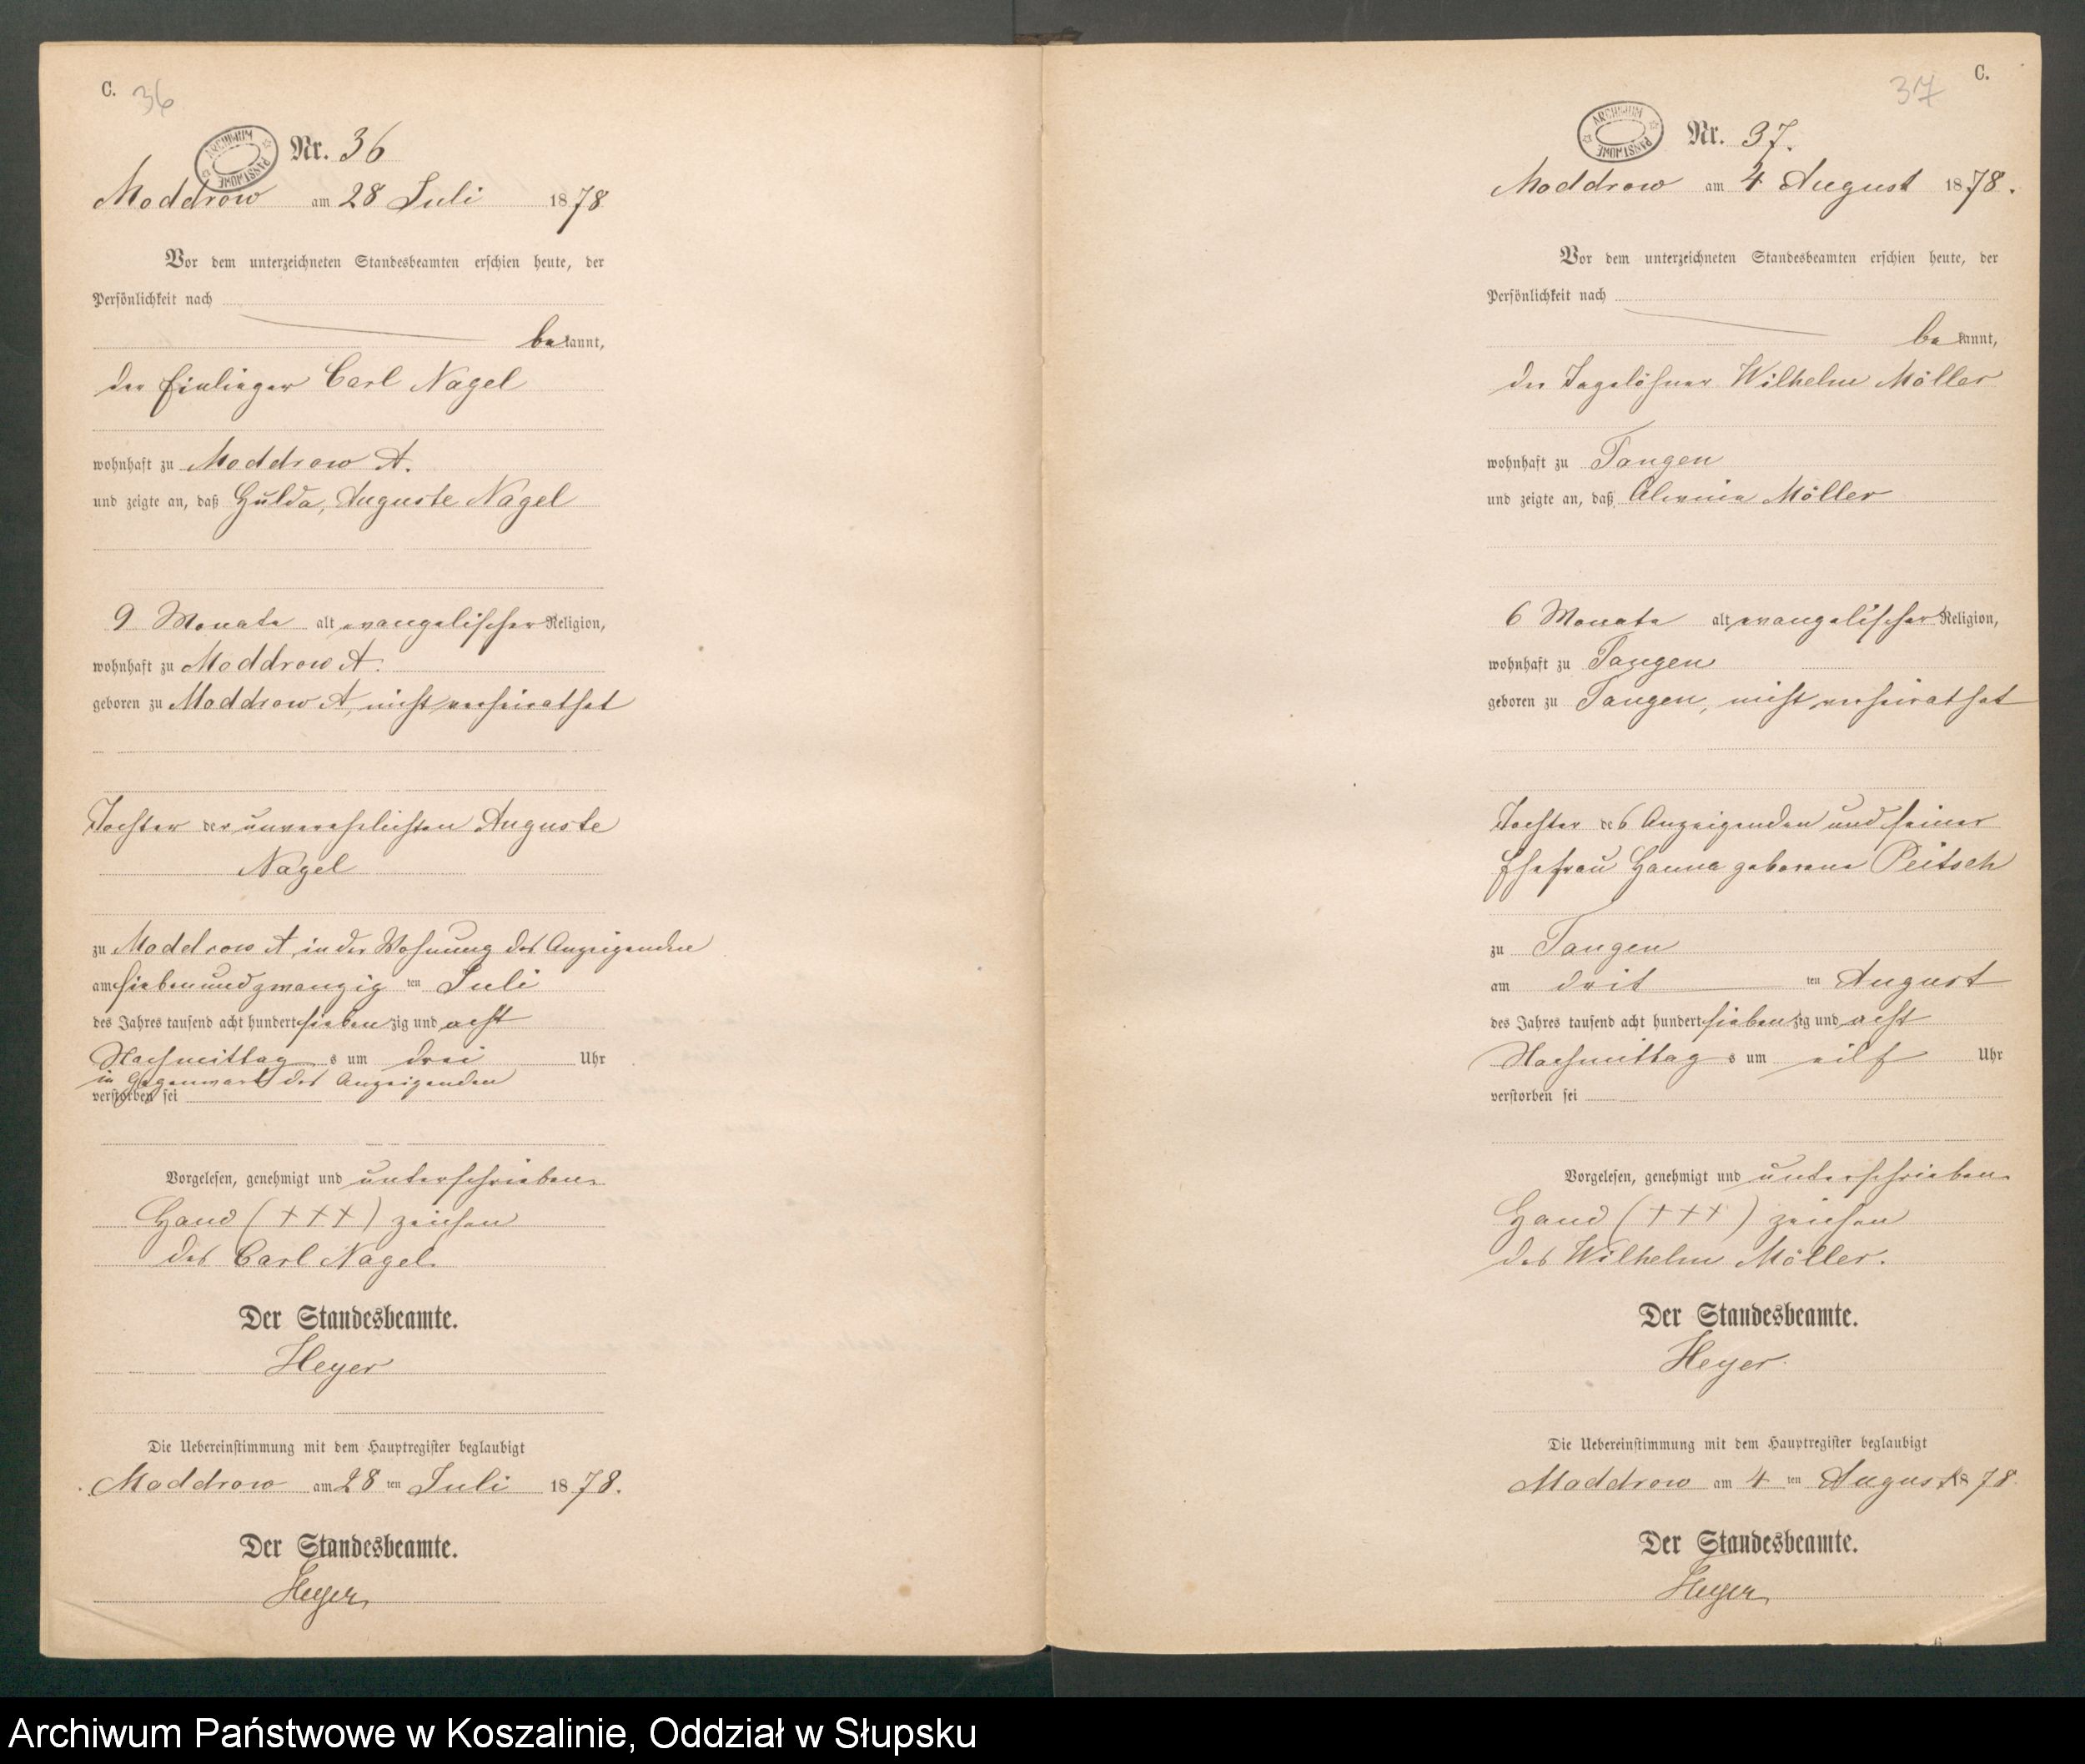 C. 36
ARCHIWUM PAŃSTWOWE
Nr. 36
Moddrow am 28 Juli 1878
Vor dem unterzeichneten Standesbeamten erschien heute, der
Persönlichkeit nach
bekannt,
der Einlieger Carl Nagel
wohnhaft zu Moddrow A.
und zeigte an, daß Hulda, Auguste Nagel
9 Monate alt evangelischer Religion,
wohnhaft zu Moddrow A.
geboren zu Moddrow A, nicht verheirathet
Tochter der unverehelichten Auguste
Nagel
zu Moddrow A, in der Wohnung des Anzeigenden
am siebenundzwanzig ten Juli
des Jahres tausend acht hundert siebenzig und acht
Nachmittag s um drei Uhr
in Gegenwart des Anzeigenden
verstorben sei
Vorgelesen, genehmigt und unterschrieben
Hand (+++) zeichen
des Carl Nagel.
Der Standesbeamte.
Heyer
Die Uebereinstimmung mit dem Hauptregister beglaubigt
Moddrow am 28 ten Juli 1878.
Der Standesbeamte.
Heyer
37 C.
ARCHIWUM PAŃSTWOWE
Nr. 37.
Moddrow am 4 August 1878.
Vor dem unterzeichneten Standesbeamten erschien heute, der
Persönlichkeit nach
bekannt,
der Tagelöhner Wilhelm Möller
wohnhaft zu Tangen
und zeigte an, daß Alwine Möller
6 Monate alt evangelischer Religion,
wohnhaft zu Tangen
geboren zu Tangen, nicht verheirathet
Tochter des Anzeigenden und seiner
Ehefrau Hanna geborene Peitsch
zu Tangen
am drit ten August
des Jahres tausend acht hundert siebenzig und acht
Nachmittag s um eilf Uhr
verstorben sei
Vorgelesen, genehmigt und unterschrieben
Hand (+++) zeichen
des Wilhelm Möller.
Der Standesbeamte.
Heyer.
Die Uebereinstimmung mit dem Hauptregister beglaubigt
Moddrow am 4 ten August 1878.
Der Standesbeamte.
Heyer
6
Archiwum Państwowe w Koszalinie, Oddział w Słupsku